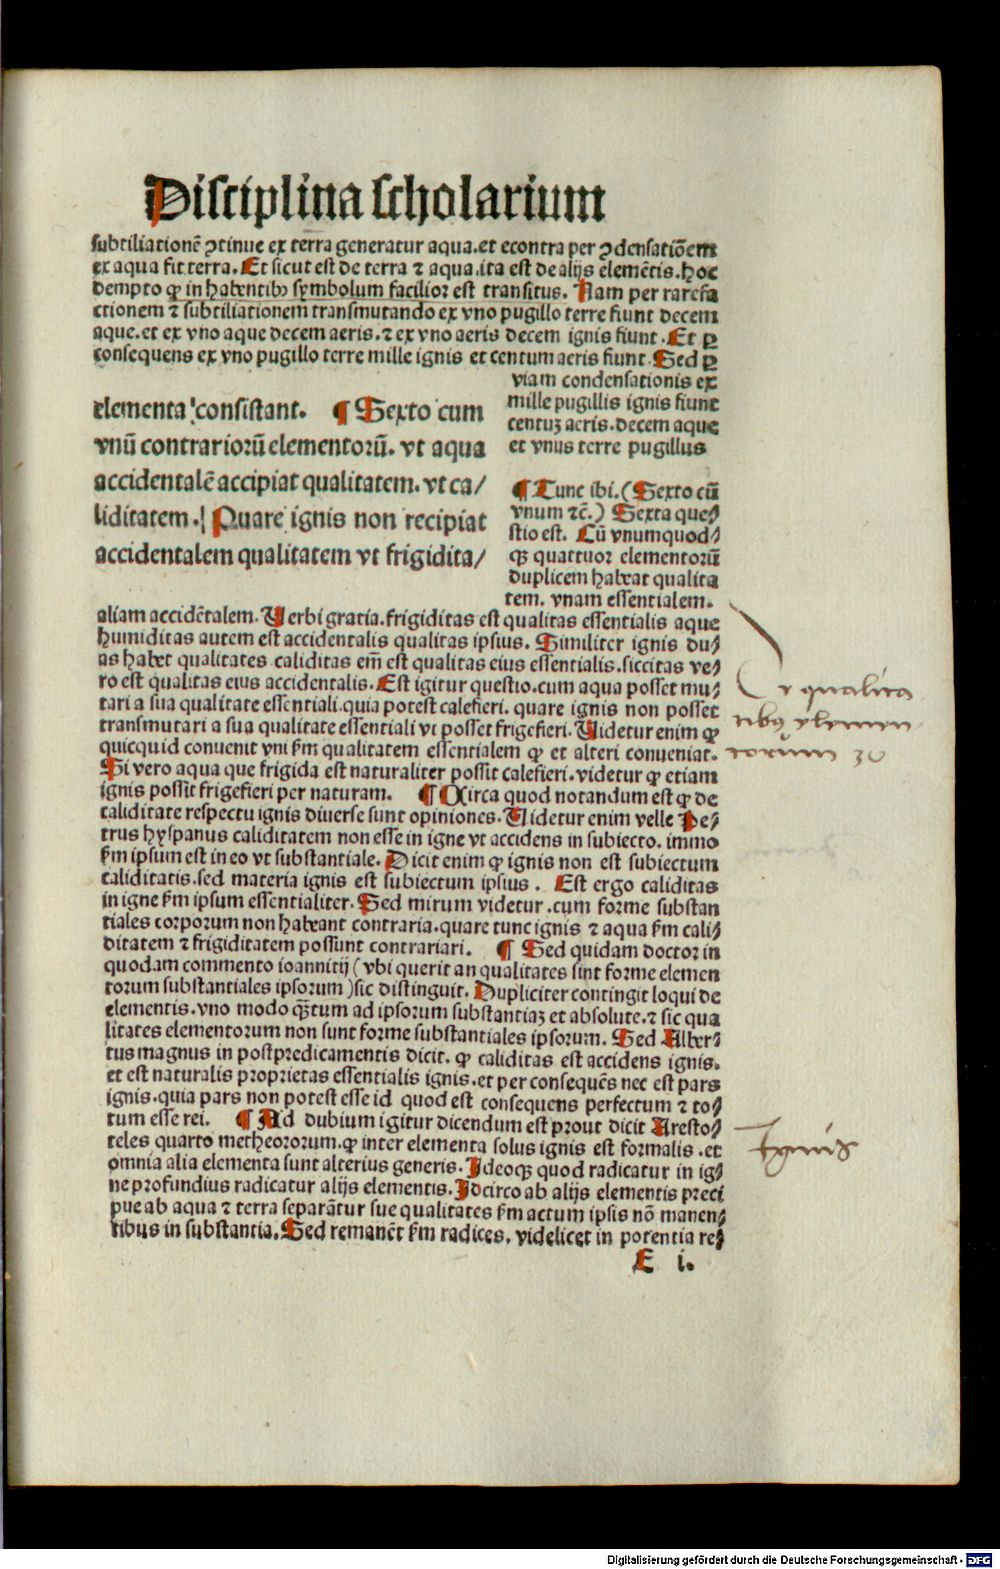 Disciplina scholarium
subtiliationē ꝯtinue ex terra generatur aqua.et econtra per ꝯdensatiōem
ex aqua fit terra. Et sicut est de terra ⁊ aqua.ita est de alijs elemētis.hoc
dempto ꝙ in habentibꝰ symbolum facilior est transitus. Nam per rarefa
ctionem ⁊ subtiliationem transmutando ex vno pugillo terre fiunt decem
aque.et ex vno aque decem aeris.⁊ ex vno aeris decem ignis fiunt. Et ꝑ
consequens ex vno pugillo terre mille ignis et centum aeris fiunt. Sed ꝑ
viam condensationis ex
mille pugillis ignis fiunt
centuꝫ aeris.decem aque
et vnus terre pugillus
elementa consistant. ¶ Sexto cum
vnū contrariorū elementorū. vt aqua
accidentalē accipiat qualitatem. vt ca/
liditatem. Quare ignis non recipiat
accidentalem qualitatem vt frigidita/
¶ Tunc ibi. (Sexto cū
vnum ⁊c̄.) Sexta que/
stio est. Cū vnumquod/
qꝫ quattuor elementorū
duplicem habeat qualita
tem. vnam essentialem.
aliam accidētalem. Verbi gratia. frigiditas est qualitas essentialis aque
humiditas autem est accidentalis qualitas ipsius. Similiter ignis du/
as habet qualitates.caliditas em̄ est qualitas eius essentialis.siccitas ve/
ro est qualitas eius accidentalis. Est igitur questio.cum aqua posset mu/
tari a sua qualitate essentiali.quia potest calefieri. quare ignis non posset
transmutari a sua qualitate essentiali vt posset frigefieri. Videtur enim ꝙ
quicquid conuenit vni km̄ qualitatem essentialem ꝙ et alteri conueniat.
Si vero aqua que frigida est naturaliter possit calefieri.videtur ꝙ etiam
ignis possit frigefieri per naturam. ¶ Circa quod notandum est ꝙ de
caliditate respectu ignis diuerse sunt opiniones. Videtur enim velle Pe/
trus hyspanus caliditatem non esse in igne vt accidens in subiecto. immo
km̄ ipsum est in eo vt substantiale. Dicit enim ꝙ ignis non est subiectum
caliditatis.sed materia ignis est subiectum ipsius. Est ergo caliditas
in igne km̄ ipsum essentialiter. Sed mirum videtur.cum forme substan
tiales corporum non habeant contraria.quare tunc ignis ⁊ aqua km̄ cali/
ditatem ⁊ frigiditatem possunt contrariari. ¶ Sed quidam doctor in
quodam commento ioannitij (vbi querit an qualitates sint forme elemen
torum substantiales ipsorum) sic distinguit. Dupliciter contingit loqui de
elementis.vno modo qꝫtum ad ipsorum substantiaꝫ et absolute.⁊ sic qua
litates elementorum non sunt forme substantiales ipsorum. Sed Alber/
tus magnus in postpredicamentis dicit. ꝙ caliditas est accidens ignis.
et est naturalis proprietas essentialis ignis.et per consequēs nec est pars
ignis.quia pars non potest esse id quod est consequens perfectum ⁊ to/
tum esse rei. ¶ Ad dubium igitur dicendum est prout dicit Aresto/
teles quarto metheororum.ꝙ inter elementa solus ignis est formalis.et
omnia alia elementa sunt alterius generis. Ideoqꝫ quod radicatur in ig/
ne profundius radicatur alijs elementis. Idcirco ab alijs elementis preci
pue ab aqua ⁊ terra separātur sue qualitates km̄ actum ipsis nō manen/
tibus in substantia. Sed remanēt km̄ radices. videlicet in potentia re/
E i.
qualita
tibꝫ elemen
torum
Ignis
Digitalisierung gefördert durch die Deutsche Forschungsgemeinschaft - DFG